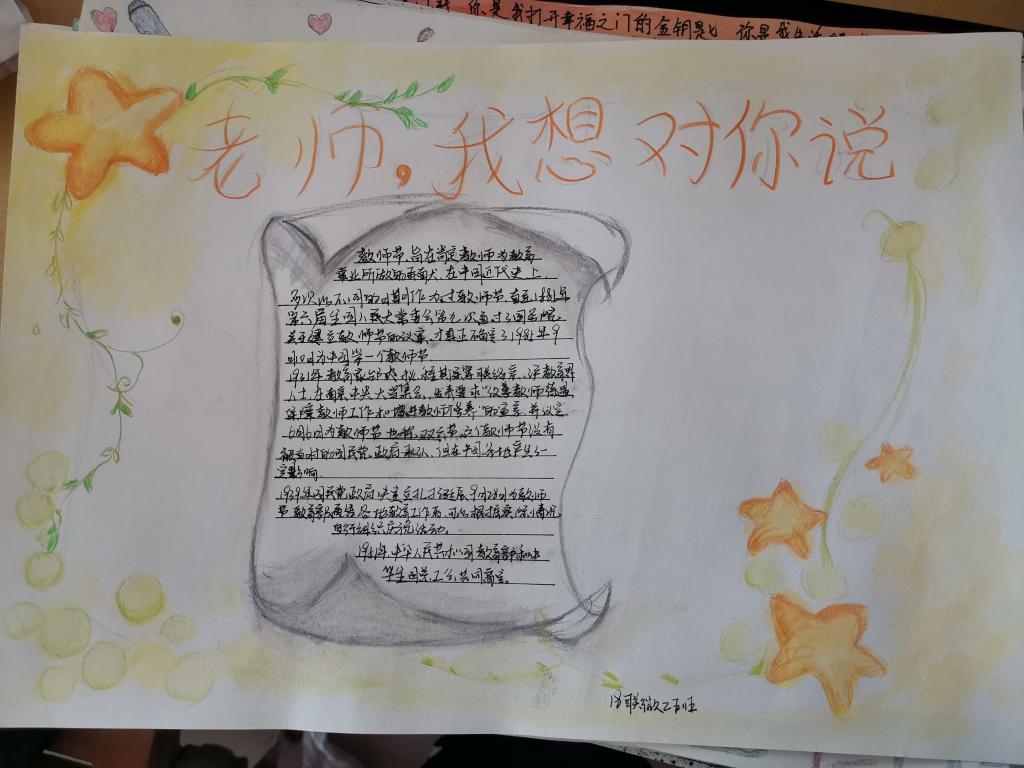 你是我打开幸福之门的金钥匙 你是我生
老师，我想对你说
教师节，旨在肯定教师为教育
事业所做的贡献。在中国近代史上
多次以不同的日期作为过教师节，直至1981年
第六届全国人民大常委会第九次会议通过了国务院
关于建立教师节的议案，才真正确定了1981年9
月10日为中国第一个教师节
1931年教育家邰爽秋、程其保等联络京、沪教育界
人士，在南京中央大学集会，发表要求"改善教师待遇
保障教师工作和增进教师修养"的宣言，并议定
6月6日为教师节，也称双六节，这个教师节没有
被当时的国民党政府承认，但在中国各地产生了一
定影响
1939年国民党政府决定立孔子诞辰9月28日为教师
节，教育部通告各地教育工作者，可以根据实际情况
自行组织庆祝活动。
1951年，中华人民共和国教育部和中
华全国总工会共同商定。
18联微2五班